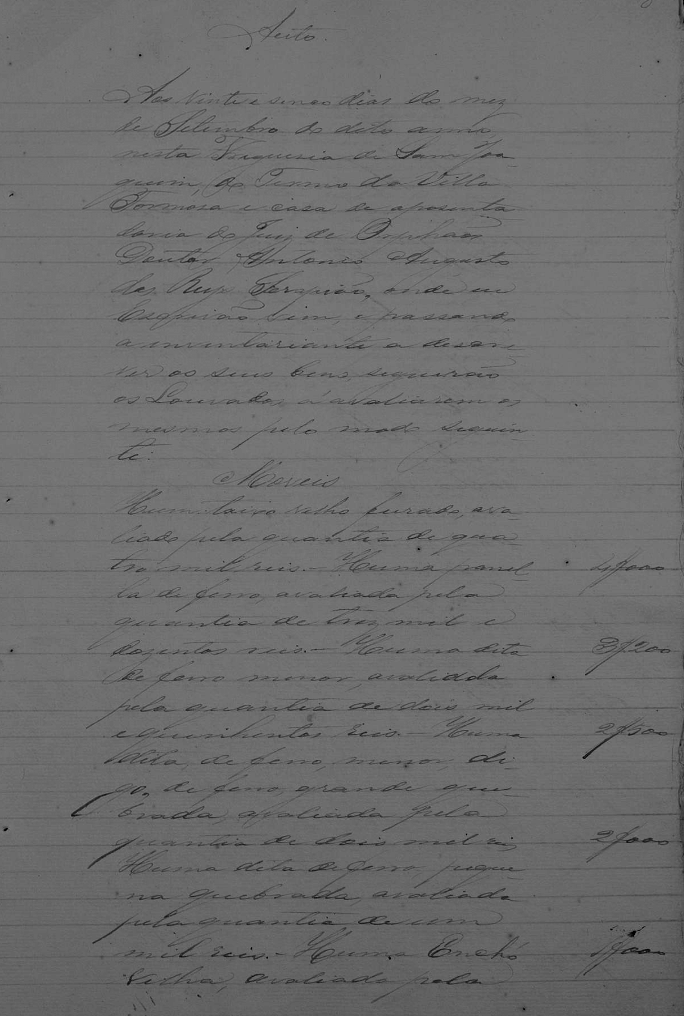 Auto.
Aos vinte e sinco dias do mez
de Setembro do dito anno
nesta Freguesia de Sam Joa
quim, do Termo da Villa
Formosa e casa de aposenta
doria do Juiz de Orphãos
Doutor Antonio Augusto
dos Reys Serapião, onde eu
Escrivão vim, e passando
a inventariante a descre-
ver os seus bens, seguirão
os Louvados á avaliarem os
mesmos pelo modo seguin
te:
Moveis
Hum taixo velho furado, ava-
liado pela quantia de qua
tro mil reis.- Huma panel- 4$000
la de ferro, avaliada pela
quantia de trez mil e
dozentos reis.- Huma dita 3$200
de ferro menor, avaliada
pela quantia de dois mil
e quinhentos reis.- Huma 2$500
dita, de ferro, menor, di-
go, de ferro, grande que
brada, avaliada pela
quantia de dois mil reis 2$000
Huma dita de ferro, peque
na quebrada, avaliada
pela quantia de um
mil reis.- Huma Enchó 1$000
velha, avaliada pela